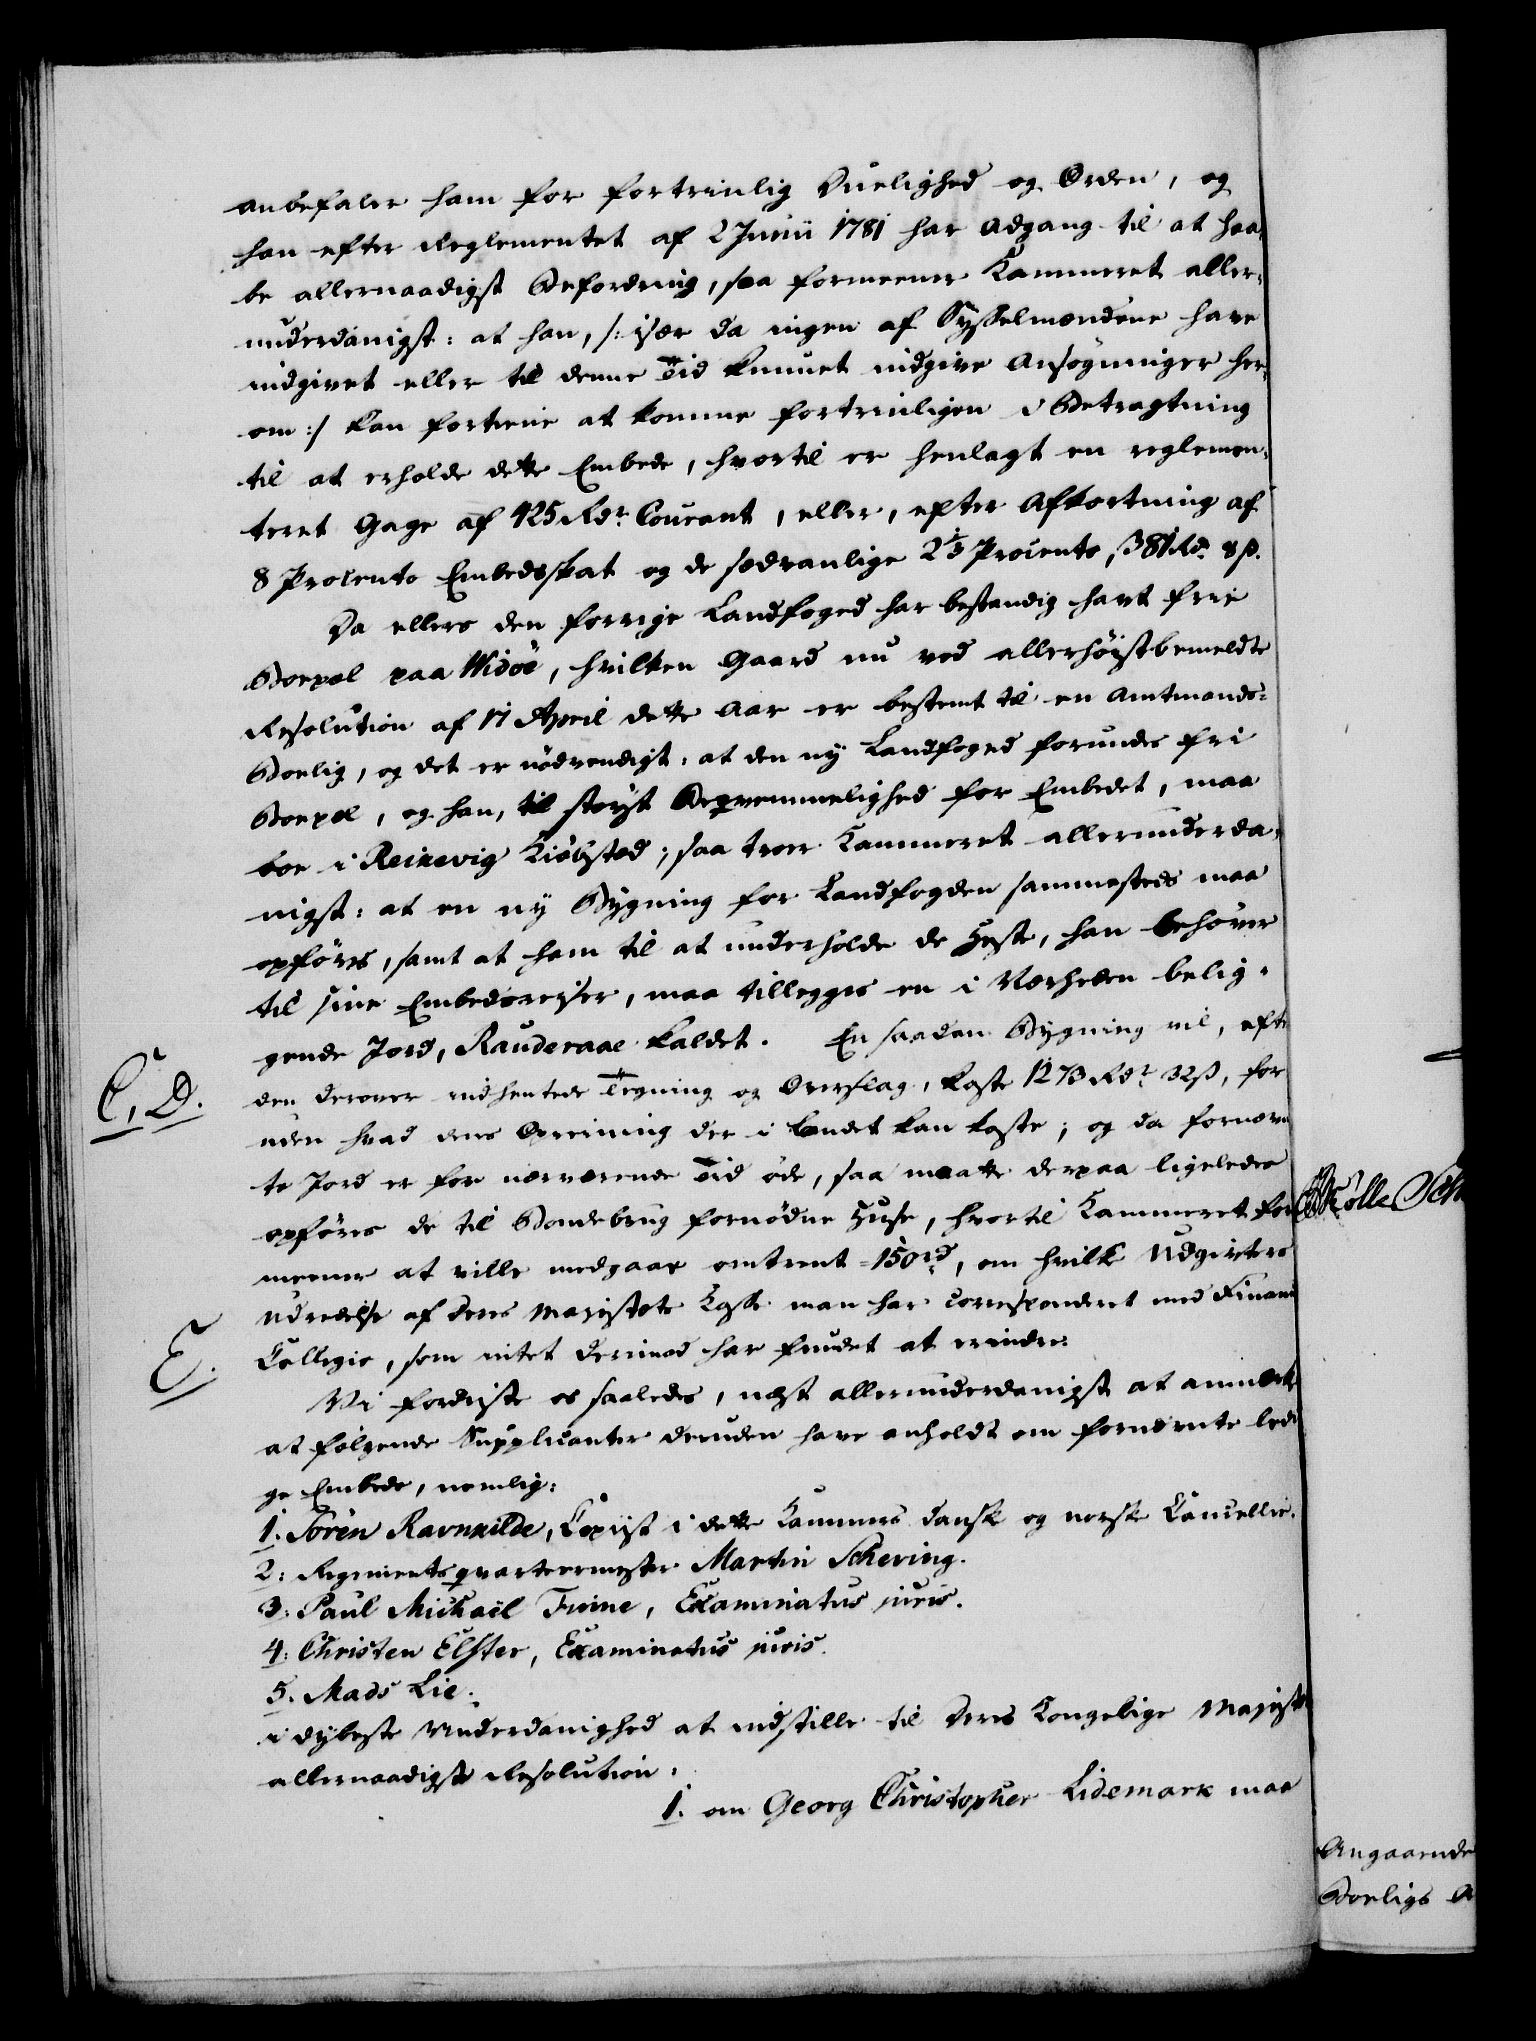 anbefaler ham for fortrinlig Duelighed og Orden, og
han efter Reglementet af 2 Junii 1781 har Adgang til at haa-
be allernaadigst Befordring, saa formeener Kammeret aller-
underdanigst: at han, /: især da ingen af Sysselmændene have
indgivet eller til denne Tid kunnet indgive Ansøgninger her-
om :/ kan fortiene at komme fortrinligen i Betragtning
til at erholde dette Embede, hvortil er henlagt en reglemen-
teret Gage af 425 Rdr. Courant, eller, efter Afkortning af
8 Procento Embedsskat og de sædvanlige 2⅓ Procento, 381 Rd. 8 ß.
Da ellers den forrige Landfoged har bestandig havt frie
Boepæl paa Widöe, hvilken Gaard nu ved allerhöistbemeldte
Resolution af 17 April dette Aar er bestemt til en Amtmands-
Boelig, og det er nödvendigt: at den ny Landfoged forundes fri
Boepæl, og han, til störst Beqvemmelighed for Embedet, maa
boe i Reikevig Kiöbsted; saa troer Kammeret allerunderda-
nigst: at en ny Bygning for Landfogden sammesteds maa
opföres, samt at ham til at underholde de Heste, han behöver
til sine Embedsreiser, maa tillegges en i Nærheden belig-
gende Jord, Rauderaae kaldet. En saadan Bygning vil, efter
C, D.
den derover indhentede Tegning og Overslag, koste 1273 Rdr 32 ß, for
uden hvad dens Opreisning der i Landet kan koste; og da fornævn
te Jord er for nærværende Tid öde, saa maatte derpaa ligeledes
opföres de til Bondebrug fornödne Huse, hvortil Kammeret for
meener at ville medgaae omtrent 150 rd, om hvilke Udgivters
Udredelse af Deres Majestets Kasse man har corresponderet med Finanz
E.
Collegio, som intet derimod har fundet at erindre.
Vi fordriste os saaledes, næst allerunderdanigst at anmærke
at fölgende Supplicanter desuden have anholdt om fornævnte ledi
ge Embede, nemlig:
1. Sören Ravnkilde, Copiist i dette Kammers danske og norske Cancellie.
2: Regimentsqvarteermester Martin Schering.
3: Paul Michaël Finne, Examinatus juris.
4: Christen Elster, Examinatus juris.
5. Mads Lie.
i dybeste Underdanighed at indstille til Deres Kongelige Majestets
allernaadigste Resolution:
1. om Georg Christopher Lidemark maa
Kölle Sch
Angaaende
Boeligs A